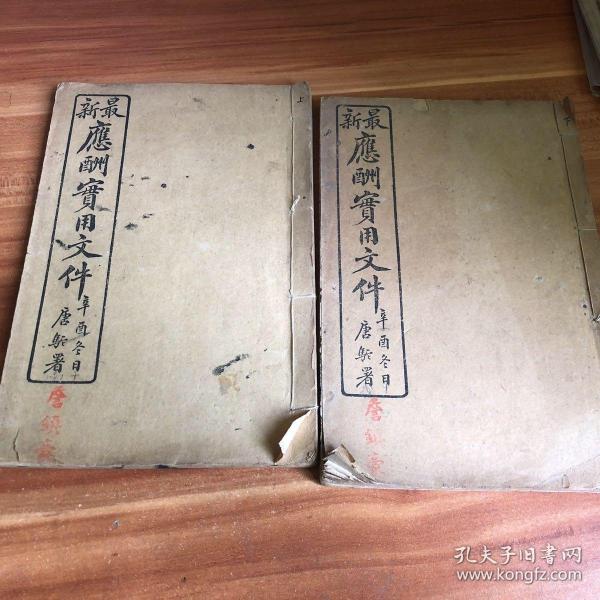 最新
應酬實用文件
辛酉冬日
唐駝署
上
最新
應酬實用文件
辛酉冬日
唐駝署
下
孔夫子旧书网
www.kongfz.com